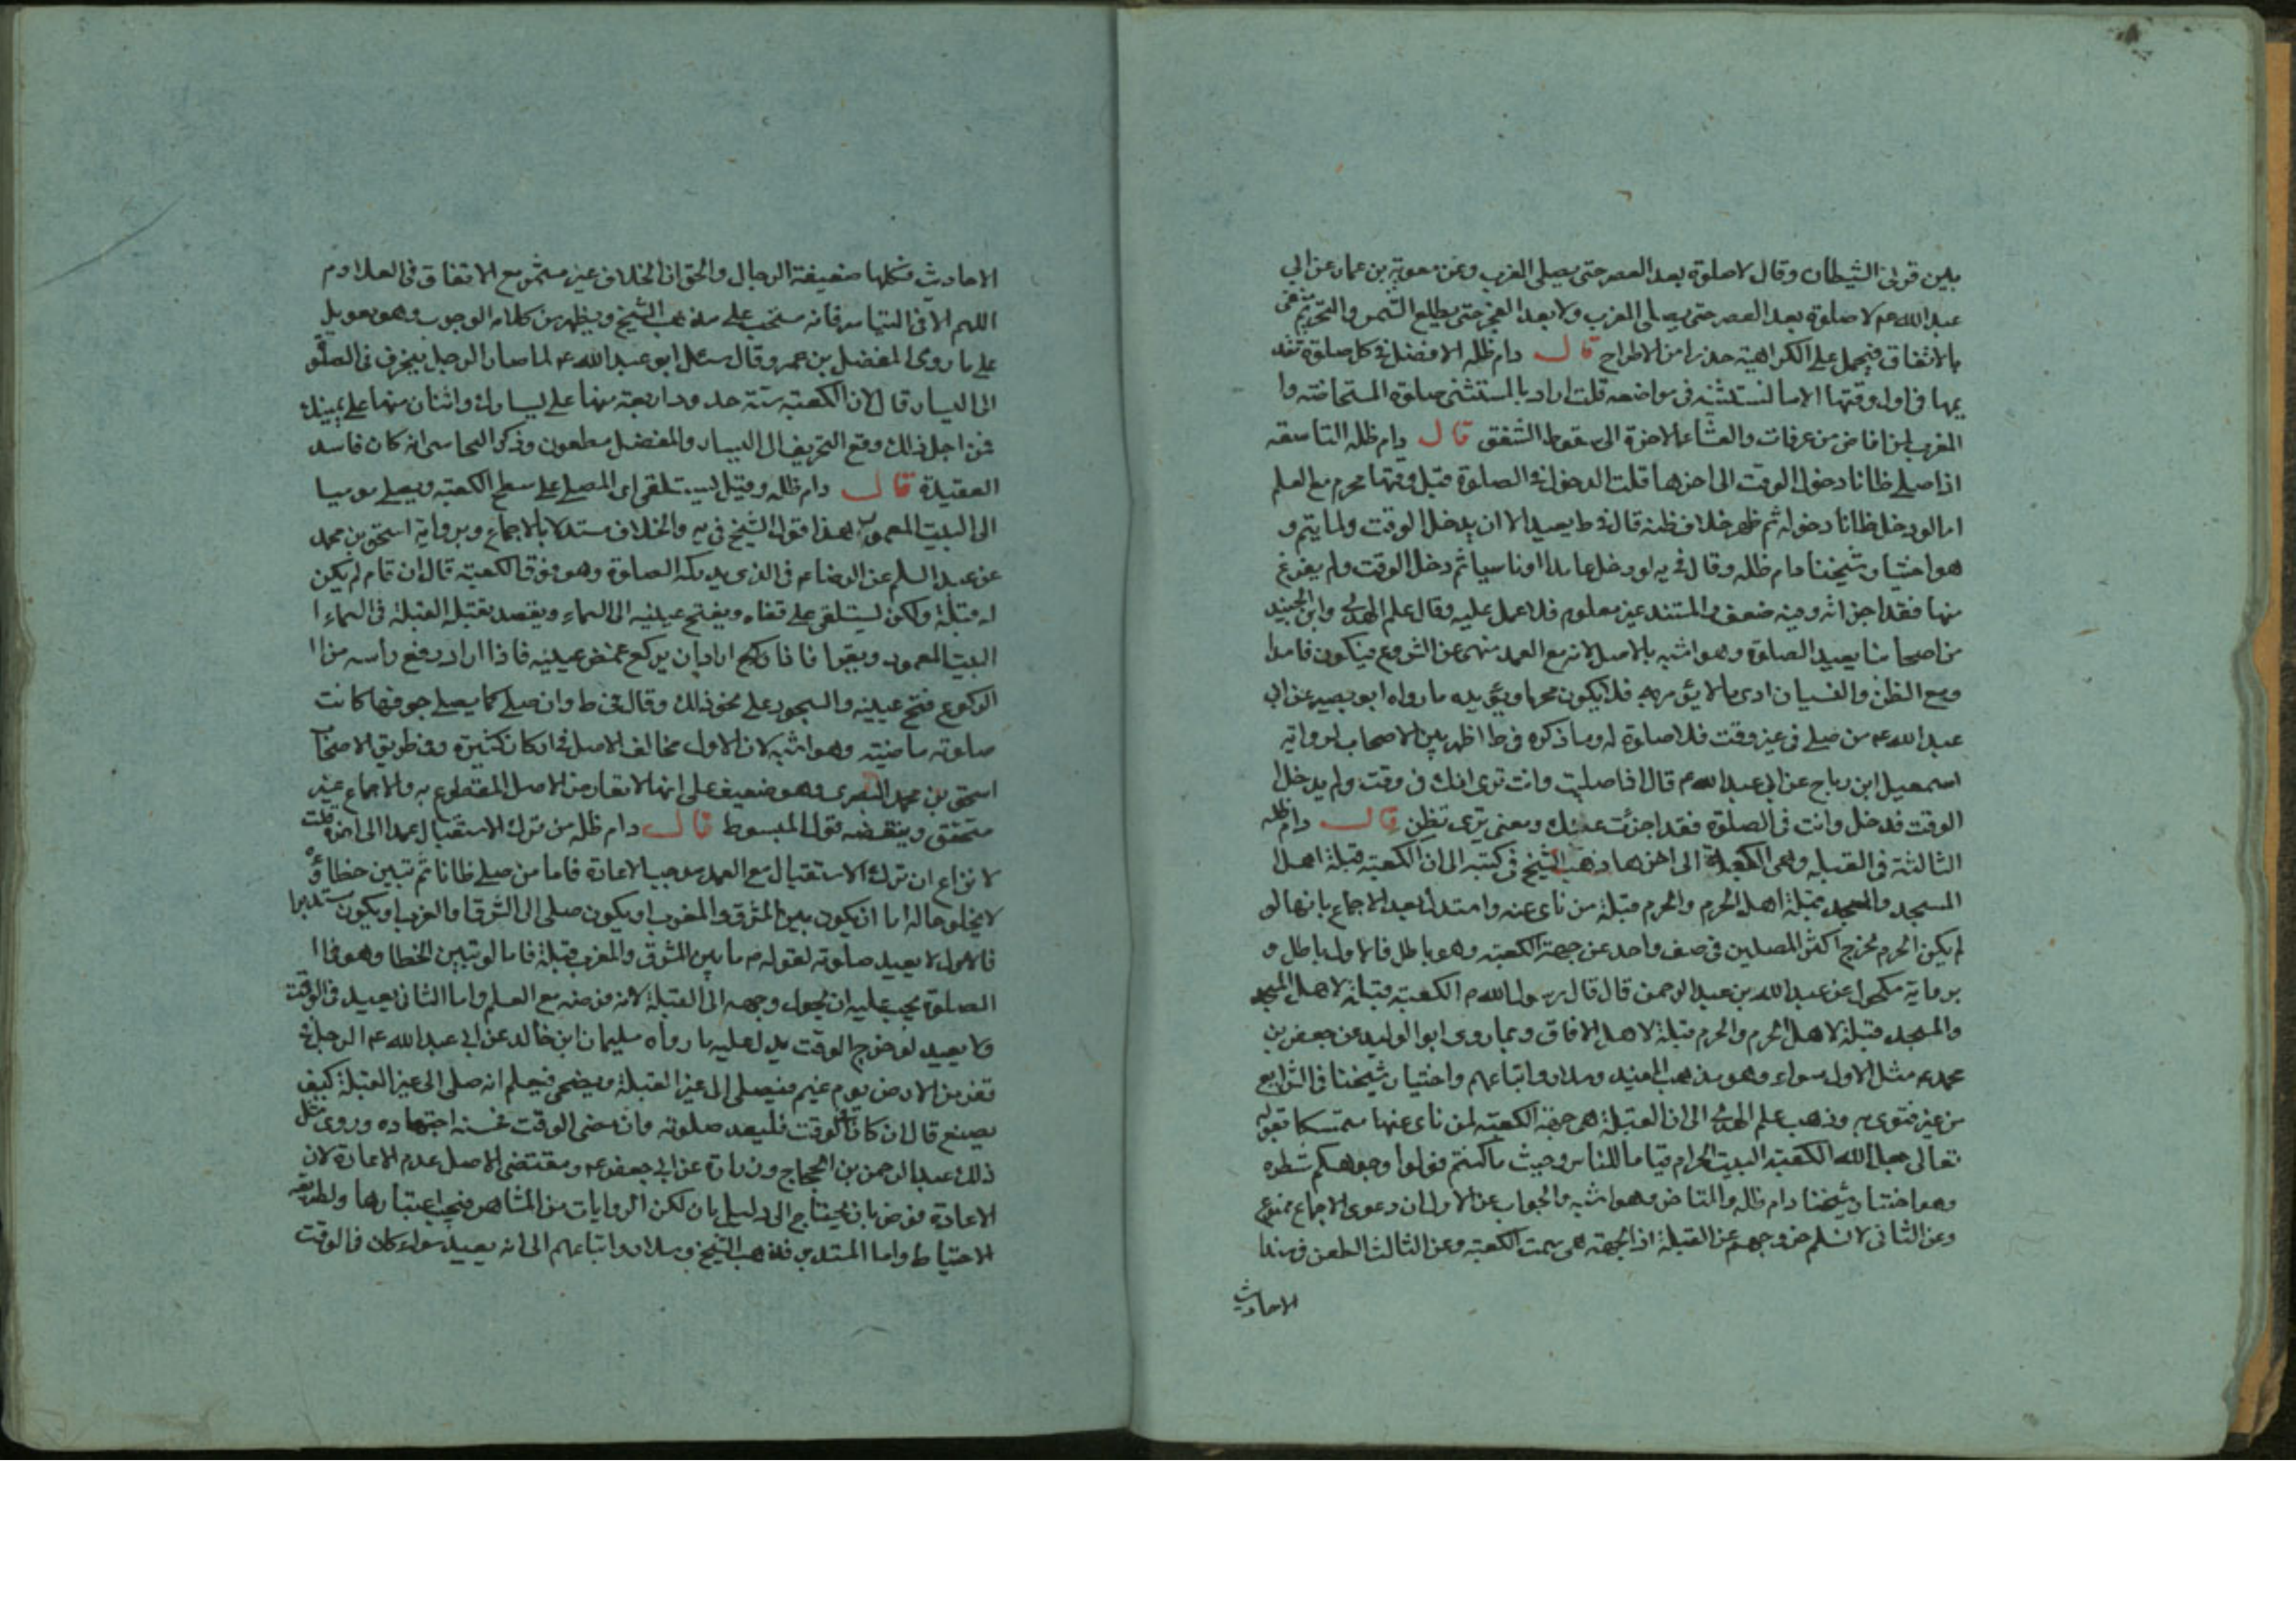 بين قرنى الشيطان وقال لا صلوة بعد العصر حتى يصلى المغرب وعن معوية بن عمار عن ابي
عبد الله عم لا صلوة بعد العصر حتى يصلى المغرب ولا بعد الفجر حتى يطلع الشمس والتحريم منفى
بالاتفاق فيحمل على الكراهية حذرا من الاطراح قال دام ظله الافضل فى كل صلوة تقد
يمها فى اول وقتها الا ما نستثنيه فى مواضعه قلت اراد بالمستثنى صلوة المستحاضة وا
المغرب لمن افاض من عرفات والعشاء الاخرة الى سقوط الشفق قال دام ظله التاسعة
اذا صلى ظانا دخول الوقت الى اخرها قلت الدخول فى الصلوة قبل وقتها محرم مع العلم
اما لو دخل ظانا دخوله ثم ظهر خلاف ظنه قال فى ط يعيد الا ان يدخل الوقت ولما يتم و
هو اختيار شيخنا دام ظله وقال فى يه لو دخل عامدا او ناسيا ثم دخل الوقت ولم يفرغ
منها فقد اجزاته وفيه ضعف والمستند غير معلوم فلا عمل عليه وقال علم الهدى وابن الجنيد
من اصحابنا يعيد الصلوة وهو اشبه بالاصل لانه مع العمد منهى عن الشروع فيكون فاسدا
ومع الظن والنسيان ادى ما لا يؤمر به فلا يكون مجزيا ويؤيده ما رواه ابو بصير عن ابي
عبد الله عم من صلى فى غير وقت فلا صلوة له وما ذكره فى ط اظهر بين الاصحاب لرواية
اسمعيل ابن رباح عن ابي عبد الله م قال اذا صليت وانت ترى انك فى وقت ولم يدخل
الوقت فدخل وانت فى الصلوة فقد اجزئت عنك ومعنى ترى تظن قال دام ظله
الثالثة فى القبلة وهى الكعبة الى اخرها ذهب الشيخ فى كتبه الى ان الكعبة قبلة اهل
المسجد والمسجد قبلة اهل الحرم والحرم قبلة من ناى عنه واستدل بعد الاجماع بانها لو
لم يكن الحرم لخرج اكثر المصلين فى صف واحد عن جهة الكعبة وهو باطل فالاول باطل و
برواية مكحول عن عبد الله بن عبد الرحمن قال قال رسول الله م الكعبة قبلة لاهل المسجد
والمسجد قبلة لاهل الحرم والحرم قبلة لاهل الافاق وبما روى ابو الوليد عن جعفر بن
محمد ع مثل الاول سواء وهو مذهب المفيد وسلار واتباعهم واختيار شيخنا فى الشرايع
من غير فتوى به وذهب علم الهدى الى ان القبلة هى جهة الكعبة لمن ناى عنها متمسكا بقوله
تعالى جعل الله الكعبة البيت الحرام قياما للناس وحيث ما كنتم فولوا وجوهكم شطره
وهو اختيار شيخنا دام ظله والمتاخر وهو اشبه والجواب عن الاول ان دعوى الاجماع ممنوع
وعن الثانى لا نسلم خروجهم عن القبلة اذ الجهة هى سمت الكعبة وعن الثالث الطعن فى هذا
الاحاديث
الاحاديث فكلها ضعيفة الرجال والحق ان الخلاف غير مثمر مع الاتفاق فى العلا دم
اللهم الا فى التياسر فانه مستحب على مذهب الشيخ ويظهر من كلامه الوجوب وهو تعويل
على ما روى المفضل بن عمر وقال سئل ابو عبد الله ع لما صار الرجل ينحرف فى الصلو
الى اليسار قال لان الكعبة ستة حدود اربعة منها على يسارك واثنان منها على يمينك
فمن اجل ذلك وقع التحريف الى اليسار والمفضل مطعون وذكر النجاشى انه كان فاسد
العقيدة قال دام ظله وقيل يستلقى اى المصلى على سطح الكعبة ويصلى موميا
الى البيت المعمور هذا قول الشيخ فى يه والخلاف مستدلا بالاجماع وبرواية اسحق بن محمد
عن عبد السلم عن الرضا م فى الذى يدركه الصلوة وهو فوق الكعبة قال ان قام لم يكن
له قبلة ولكن يستلقى على قفاه ويفتح عينيه الى السماء ويقصد بقبله القبلة فى السماء ا
البيت المعمور ويقرا فاذا ركع اراد ان يركع غمض عينيه فاذا اراد رفع راسه من ا
الركوع فتح عينيه والسجود على نحو ذلك وقال فى ط وان صلى كما يصلى جوفها كانت
صلوته ماضية وهو اشبه لان الاول مخالف الاصل فى اركان كثيرة وفى طريق الاصحا
اسحق بن محمد البصرى وهو ضعيف على انها لا تعارض الاصل المقطوع به والاجماع غير
متحقق وينقضه قول المبسوط قال دام ظله من ترك الاستقبال عمدا الى اخره قلت
لا نزاع ان ترك الاستقبال مع العمد موجب الاعادة فاما من صلى ظانا ثم تبين خطاؤه
لا يخلو حاله اما ان يكون بين المشرق والمغرب او يكون صلى الى الشرق او الغرب او يكون مستدبرا
فالاول لا يعيد صلوته لقوله م ما بين المشرق والمغرب قبلة فاما لو تبين الخطا وهو فى ا
الصلوة يجب عليه ان يحول وجهه الى القبلة لانه فرضه مع العلم واما الثانى يعيد فى الوقت
ولا يعيد لو خرج الوقت يدل عليه ما رواه سليمان ابن خالد عن ابي عبد الله ع الرجل فى
قفر من الارض يوم غيم فيصلى الى غير القبلة ويضحى فيعلم انه صلى الى غير القبلة كيف
يصنع قال ان كان فى الوقت فليعد صلوته وان مضى الوقت فحسبه اجتهاده وروى مثل
ذلك عبد الرحمن بن الحجاج وزرارة عن ابي جعفر ع ومقتضى الاصل عدم الاعادة لان
الاعادة فرض بان يحتاج الى دليل بان لكن الروايات من المشاهير فيجب اعتبارها ولطريقة
الاحتياط واما المستدبر فذهب الشيخ وسلار واتباعهم الى انه يعيد سواء كان فى الوقت